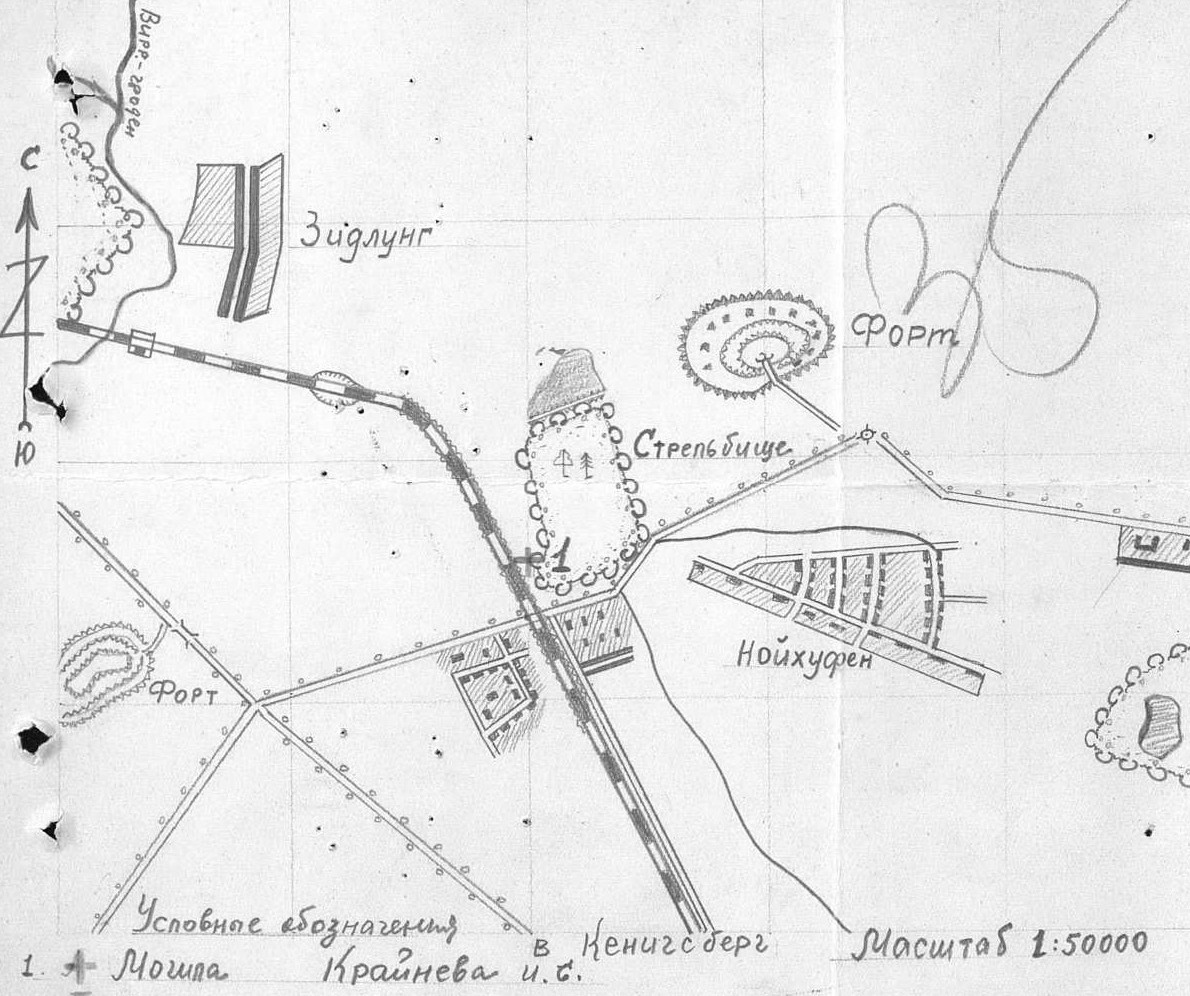 Вирр-гроден
С
Зидлунг
Форт
Ю
Стрельбище
1
Нойхуфен
Форт
Условные обозначения
в Кенигсберг
Масштаб 1:50000
1. Могила Крайнева И.С.